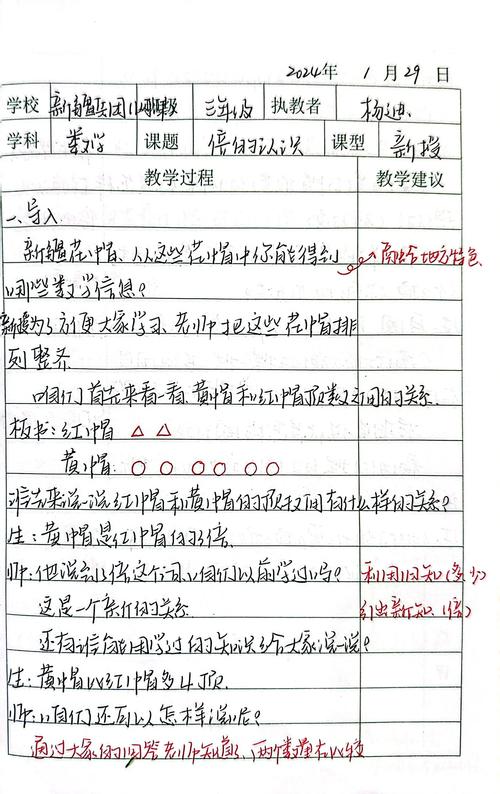 2024年 1月29日
学校 新疆兵团 三年级 执教者 杨迪
学科 数学 课题 倍的认识 课型 新授
教学过程 教学建议
一、导入
新疆花帽、从这些花帽中你能得到 融合地方特色
哪些数学信息?
为了方便大家学习、老师把这些花帽排
列整齐.
咱们首先来看一看、黄帽和红帽顶数之间的关系.
板书:红帽 △ △
黄帽: ○ ○ ○ ○ ○ ○
谁先来说一说红帽和黄帽的顶数之间有什么样的关系?
生:黄帽是红帽的3倍.
师:他说到倍这个词、咱们以前学过吗? 利用旧知(多少)
这是一个新的关系. 引出新知(倍)
还有谁能用学过的知识给大家说一说?
生:黄帽比红帽多4顶.
师:咱们还可以怎样说呢?
通过大家的回答老师知道了、两个数量在比较